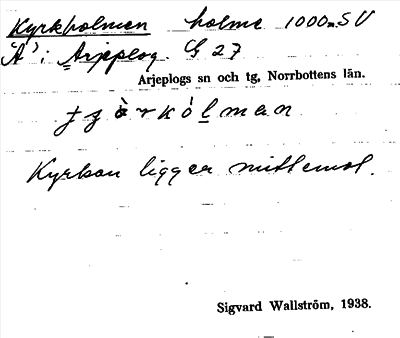 Kyrkholmen holme 1000m SV
"A", i Arjeplog. G 27
Arjeplogs sn och tg, Norrbottens län.
Kyrkan ligger mittemot.
Sigvard Wallström, 1938.